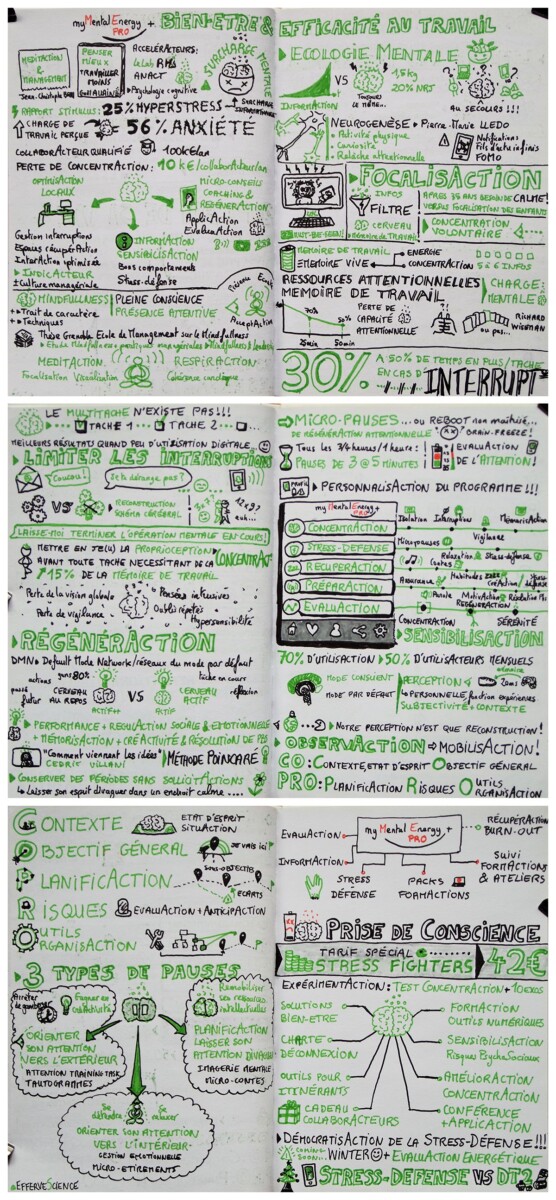 myMentalEnergy + PRO
BIEN-ETRE &
EFFICACITÉ AU TRAVAIL
MEDITACTION & MANAGEMENT
PENSER MIEUX TRAVAILLER MOINS
ACCELÉRATEURS:
LeLab RH
ANACT
Psychologie cognitive
SURCHARGE MENTALE
RAPPORT STIMULUS: 25% HYPERSTRESS
CHARGE DE TRAVAIL PERÇUE = 56% ANXIÉTÉ
COLLABORACTEUR QUALIFIÉ 100k€/an
PERTE DE CONCENTRACTION: 10k€/collaborActeur/an
OPTIMISACTION LOCAUX
MICRO-CONSEILS COACHING & RÉGÉNÉRACTION
ApplicAction
EvaluAction
Gestion interruption
Espaces récupérAction
InterAction optimisée
INFORMACTION SENSIBILISACTION
Bons comportements
Stress-défense
INDICACTEUR
± Culture managériale
MINDFULLNESS PLEINE CONSCIENCE PRÉSENCE ATTENTIVE
+→ Trait de caractère
+→ Techniques
Présence
Ecoute
AcceptAction
Thèse Grenoble Ecole de Management sur le Mindfullness
MEDITACTION
RESPIRACTION
Focalisation Visualisation
Cohérence cardiaque
ECOLOGIE MENTALE
INFORMACTION
VS
1,5kg
20% NRJ
Toujours le même...
AU SECOURS!!!
NEUROGENÈSE Pierre-Marie LLEDO
Activité physique
Curiosité
Relâche attentionnelle
Notifications
Fils d'actu infinis
FOMO
FOCALISACTION
INFOS
FILTRE
CERVEAU
Mémoire de Travail
APRÈS 35 ANS BESOIN DE CALME!
VS BRAIN FOCALISATION DES ENFANTS
CONCENTRACTION VOLONTAIRE
MEMOIRE DE TRAVAIL
= MEMOIRE VIVE
ENERGIE
CONCENTRACTION
5 à 6 INFOS
RESSOURCES ATTENTIONNELLES
MEMOIRE DE TRAVAIL
CHARGE MENTALE
70%
50%
25min
50min
PERTE DE CAPACITÉ ATTENTIONNELLE
ou pas...
RICHARD WISEMAN
30% À 50% DE TEMPS EN PLUS/TÂCHE
EN CAS D'INTERRUPT°
LE MULTITACHE N'EXISTE PAS!!!
TACHE 1 TACHE 2
MEILLEURS RÉSULTATS QUAND PEU D'UTILISATION DIGITALE
LIMITER LES INTERRUPTIONS
Coucou!
Je te dérange pas?
VS
RECONSTRUCTION SCHÉMA CÉRÉBRAL
12x9?
euh...
LAISSE-MOI TERMINER L'OPÉRATION MENTALE EN COURS!
METTRE EN JE(U) LA PROPRIOCEPTION
AVANT TOUTE TACHE NECESSITANT DE LA CONCENTRACT°
↑15% DE LA MÉMOIRE DE TRAVAIL
Perte de la vision globale
Perte de vigilance
Pensées intrusives
Oublis répétés
Hypersensibilité
RÉGÉNÉRACTION
DMN = Default Mode Network/réseaux du mode par défaut
actions
80%
passé
futur
CERVEAU AU REPOS
ACTIF++
VS
tâche en cours
CERVEAU ACTIF
ACTIF
réflexion
PERFORMANCE + REGULACTION SOCIALE & ÉMOTIONNELLE
+ MÉMORISACTION + CRÉACTIVITÉ & RÉSOLUTION DE PBS
"Comment viennent les idées"
CEDRIC VILLANI
MÉTHODE POINCARÉ
CONSERVER DES PÉRIODES SANS SOLLICITACTIONS
↳ Laisser son esprit divaguer dans un endroit calme....
MICRO-PAUSES... ou REBOOT non maîtrisé...
DE RÉGÉNÉRACTION ATTENTIONNELLE
BRAIN-FREEZE!
Tous les 3/4 heures/1 heure:
PAUSES DE 3 @ 5 MINUTES!
EVALUACTION DE L'ATTENTION!
PROFIL
PERSONNALISACTION DU PROGRAMME!!!
my Mental Energy + PRO
CONCENTRACTION
STRESS-DEFENSE
RECUPERACTION
PRÉPARACTION
EVALUACTION
Isolation
Interruption
MémorisAction
Micropauses
Vigilance
Relaxation
Stress-défense
Contes
Assurance
Habitudes
CréAction
MotivAction
RÉGÉNÉRACTION
CONCENTRACTION
SÉRÉNITÉ
SENSIBILISACTION
70% D'UTILISACTION > 50% D'UTILISACTEURS MENSUELS
MODE CONSCIENT
MODE PAR DÉFAUT
PERCEPTION
20ms
↳ PERSONNELLE, fonction expériences
SUBJECTIVITÉ + CONTEXTE
NOTRE PERCEPTION N'EST QUE RECONSTRUCTION!
OBSERVACTION ⇒ MOBILISACTION!
CO: CONTEXTE, ETAT D'ESPRIT OBJECTIF GÉNÉRAL
PRO: PLANIFICACTION RISQUES OUTILS ORGANISACTION
CONTEXTE
ETAT D'ESPRIT
SITUACTION
OBJECTIF GÉNÉRAL
Je vais ici
PLANIFICACTION
Sous-objectifs
ECARTS
RISQUES EVALUACTION + ANTICIPACTION
OUTILS
ORGANISACTION
3 TYPES DE PAUSES
Arrêter de gamberger
Gagner en créActivité
Remobiliser ses ressources intellectuelles
ORIENTER SON ATTENTION VERS L'EXTÉRIEUR
ATTENTION TRAINING TASK
TAUTOGRAMMES
PLANIFICACTION
LAISSER SON ATTENTION DIVAGUER
IMAGERIE MENTALE
MICRO-CONTES
Se détendre
Se relaxer
ORIENTER SON ATTENTION VERS L'INTÉRIEUR
GESTION ÉMOTIONNELLE
MICRO-ETIREMENTS
EFFERVESCIENCE
EVALUACTION
my Mental Energy + PRO
RÉCUPÉRACTION
BURN-OUT
INFORMACTION
STRESS DÉFENSE
PACKS FORMACTIONS
SUIVI FORMACTIONS & ATELIERS
PRISE DE CONSCIENCE
TARIF SPÉCIAL
STRESS FIGHTERS
42€
EXPÉRIMENTACTION: TEST CONCENTRACTION + 10 EXOS
SOLUTIONS BIEN-ETRE
FORMACTION OUTILS NUMÉRIQUES
CHARTE DÉCONNEXION
SENSIBILISACTION
Risques PsychoSociaux
OUTILS POUR ITINÉRANTS
AMÉLIORACTION CONCENTRACTION
CADEAU COLLABORACTEURS
CONFÉRENCE + APPLICACTION
DÉMOCRATISACTION DE LA STRESS-DÉFENSE!!!
COMING SOON... WINTER + EVALUACTION ENERGÉTIQUE
STRESS-DEFENSE VS DT2